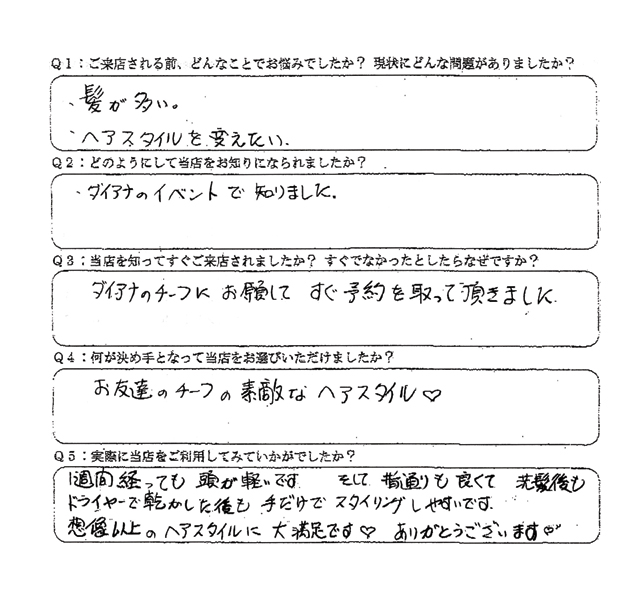 Q1：ご来店される前、どんなことでお悩みでしたか？ 現状にどんな問題がありましたか？
・髪が多い。
・ヘアスタイルを変えたい.
Q2：どのようにして当店をお知りになられましたか？
・ダイアナのイベントで知りました.
Q3：当店を知ってすぐご来店されましたか？ すぐでなかったとしたらなぜですか？
ダイアナのチーフに お願して すぐ予約を取って頂きました.
Q4：何が決め手となって当店をお選びいただけましたか？
お友達のチーフの素敵なヘアスタイル♡
Q5：実際に当店をご利用してみていかがでしたか？
1週間経っても 頭が軽いです. そして 指通りも良くて 洗髪後も
ドライヤーで乾かした後も 手だけで スタイリングしやすいです.
想像以上のヘアスタイルに 大満足です♡ ありがとうございます♡